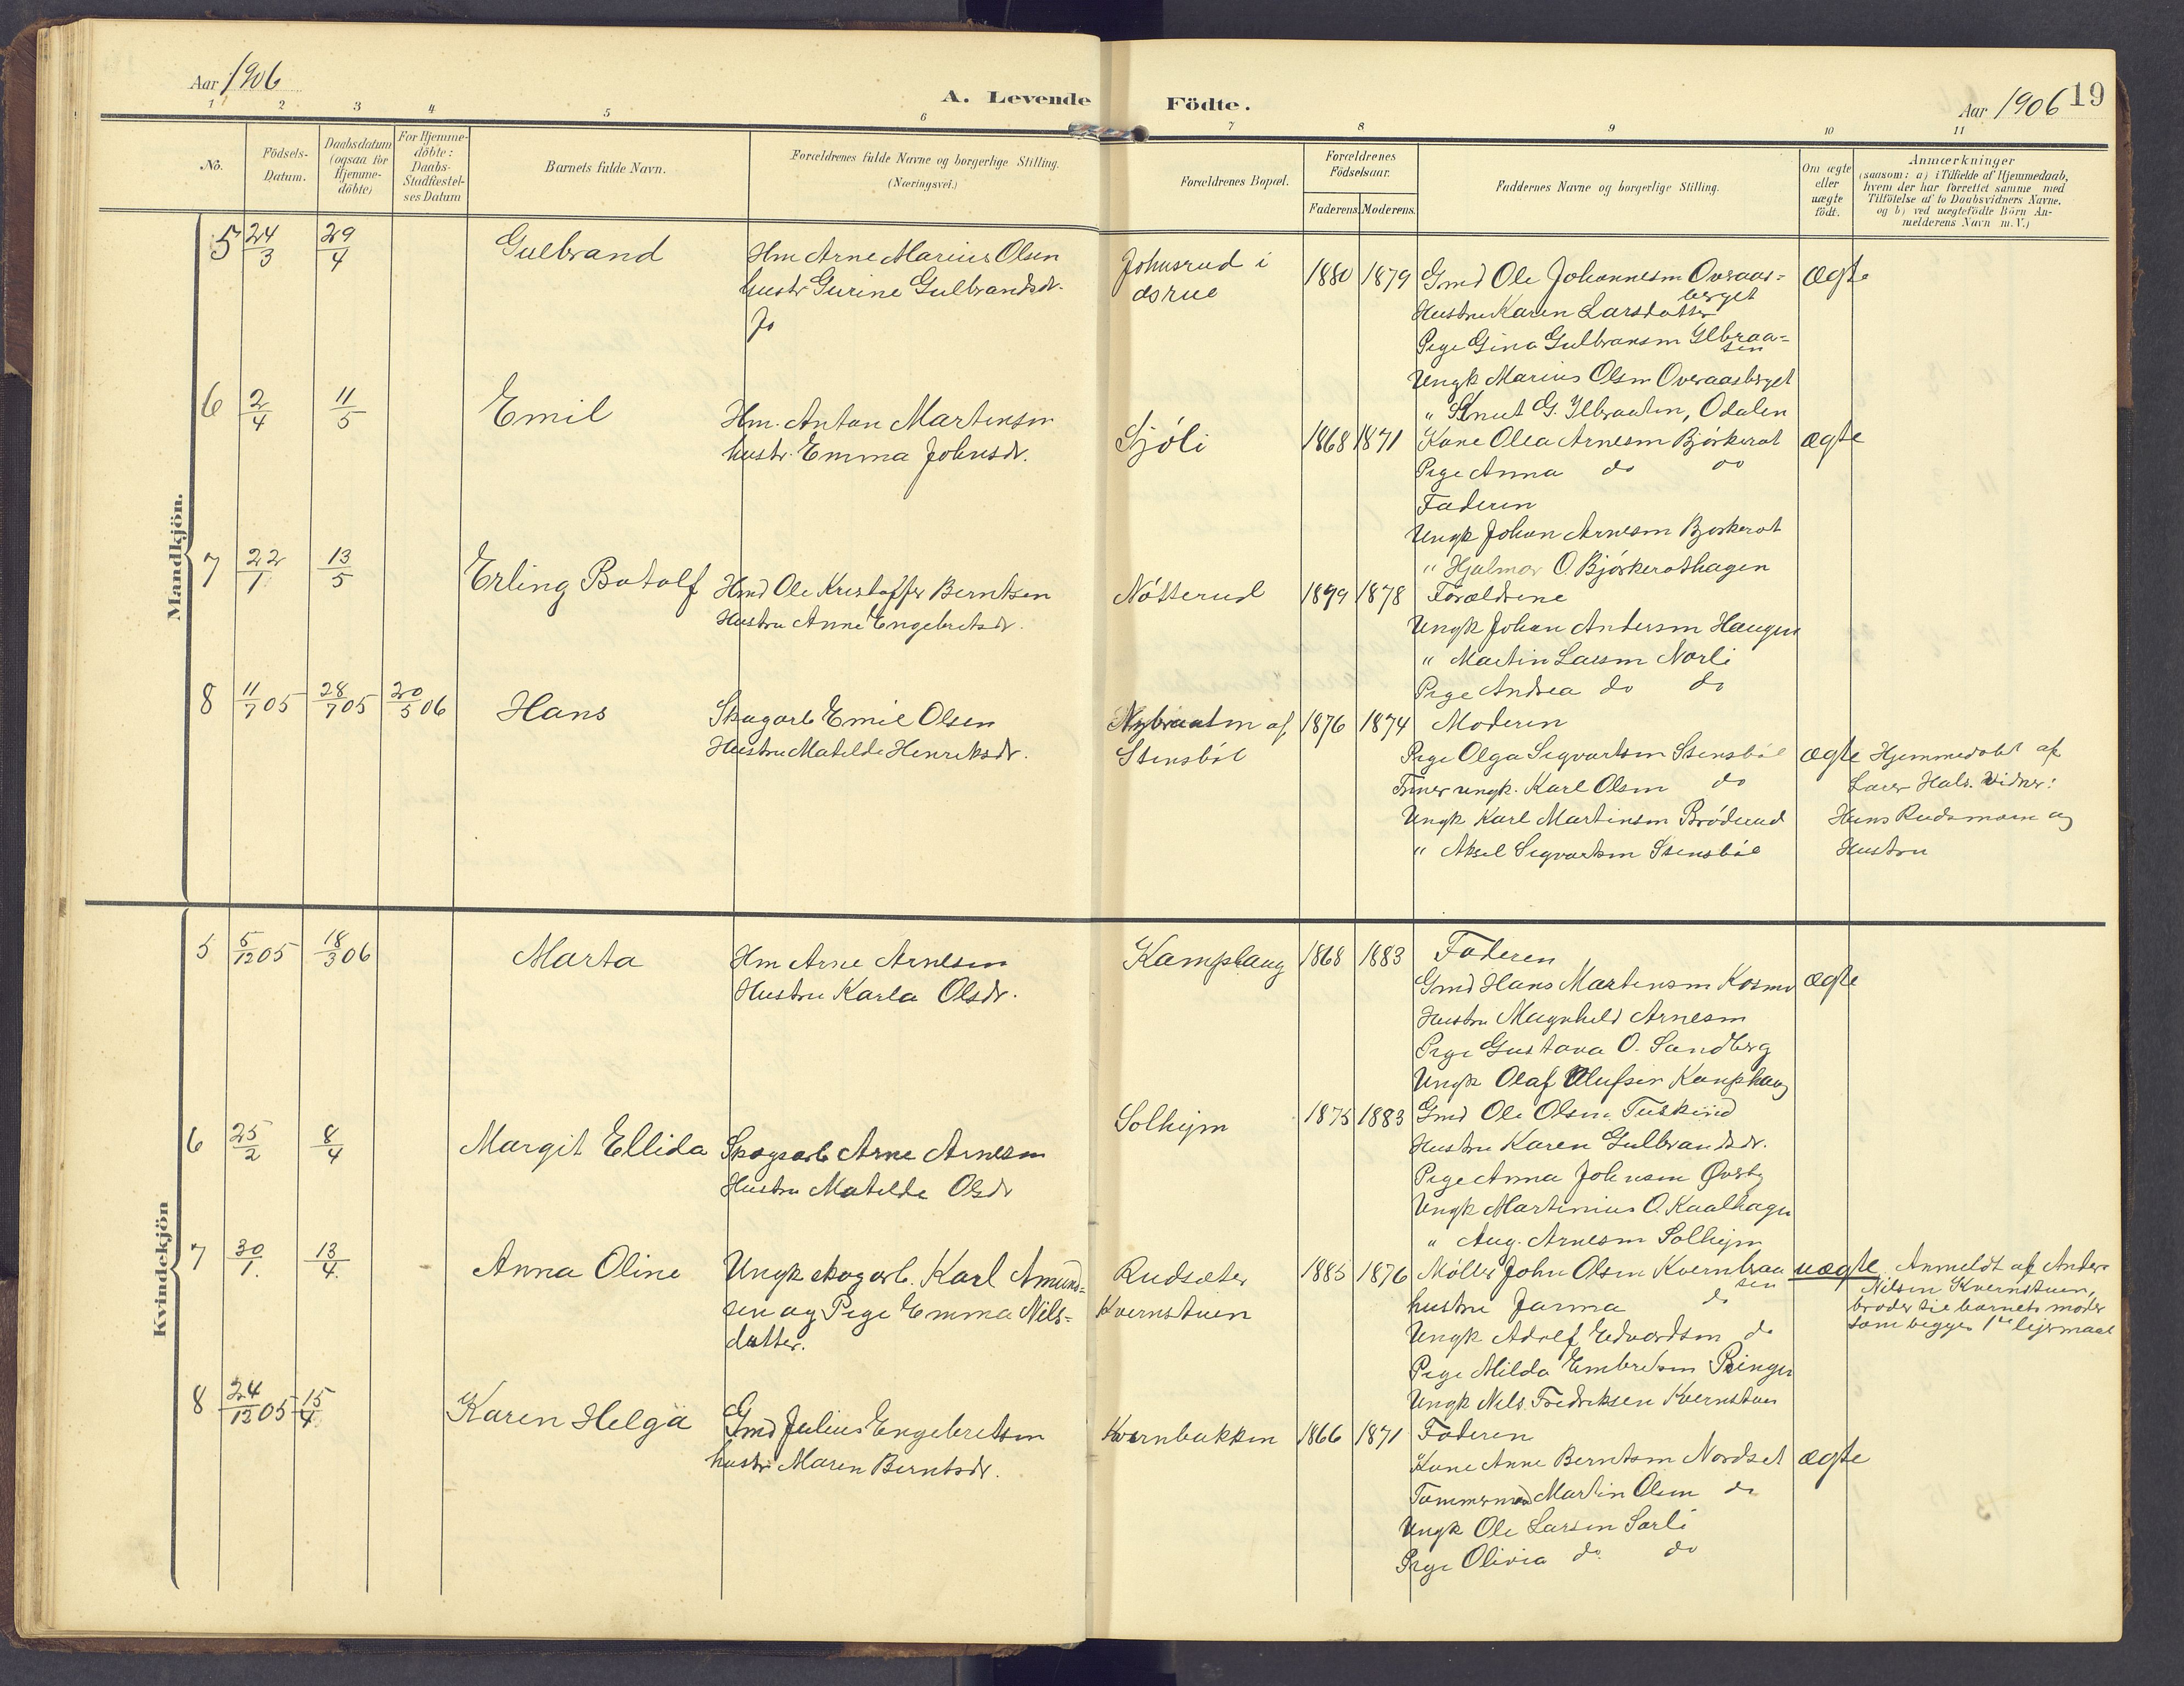 Aar 1906
A. Levende Födte.
Aar 1906 19
1 2 3 4 5 6 7 8 9 10 11
No.
Födsels-Datum.
Daabsdatum (ogsaa for Hjemme-döbte)
For Hjemme-döbte: Daabs-Stadfæstel-ses Datum
Barnets fulde Navn.
Forældrenes fulde Navne og borgerlige Stilling. (Næringsvei.)
Forældrenes Bopæl.
Forældrenes Födselsaar.
Faderens. Moderens.
Faddernes Navne og borgerlige Stilling.
Om ægte eller uægte födt.
Anmærkninger
(saasom: a) i Tilfælde af Hjemmedaab,
hvem der har forrettet samme med
Tilföielse af to Daabsvidners Navne,
og b) ved uægtefödte Börn An-
melderens Navn m. V.)
Mandkjön.
5 24/3 29/4 Gulbrand
Hm Arne Marius Olsen
hustr Gurine Gulbrandsdr.
Jo
Johnsrud i
1880 1879
Gmd Ole Johannesen Overaas=
berget
Hustru Karen Larsdatter
Pige Gina Gulbransen Ilbraa=
ten
Ungk Marius Olsen Overaasberget
" Knut G. Ilbraaten, Odalen
Ægte
6 2/4 11/5 Emil
Hm. Anton Martinsen
hustr. Emma Johnsdr.
Sjöli
1868 1871
Kone Olea Arnesen Björkerot
Pige Anna do do
Faderen
Ungk Johan Arnesen Bjorkerot
" Hjalmar O. Björkerothagen
ægte
7 22/1 13/5 Erling Botolf
Hmd Ole Kristoffer Berntsen
Hustru Anne Engebretsdr.
Nötterud
1899 1878
Forældrene
Ungk Johan Andersen Haugen
" Martin Larsen Norli
Pige Andrea do do
8 11/7 05 28/7 05 20/5 06 Hans
Skogarb Emil Olsen
Hustru Matilde Henriksdr.
Nybraaten af
Stensböl
1876 1874
Moderen
Pige Olga Sigvartsen Stensböl
ungk. Karl Olsen do
Ungk Karl Martinsen Bröderud
" Aksel Sigvartsen Stensböl
ægte
Hjemmedöbt af
Lærer Hals. Vidner:
Hans Rudsmoen og
Hustru
Kvindekjön
5 5/12 05 18/3 06 Marta
Hm Arne Arnesen
Hustru Karla Olsdr.
Kamphaug
1868 1883
Faderen
Gmd Hans Martinsen Kosmo
Hustru Magnhild Arnesen
Pige Gustava O. Sandberg
Ungk Olaf Olufsen Kamphaug
ægte
6 25/2 8/4 Margit Ellida
Skogsarb Arne Arnesen
Hustru Matilde Olsdr
Solhejm
1875 1883
Gmd Ole Olsen Tuskind
Hustru Karen Gulbrandsdr.
Pige Anna Johnsen Øvrby
Ungk Martinius O. Kaalhagen
" Aug. Arnesen Solhejm
7 30/1. 13/4. Anna Oline
Ungk skogarb. Karl Amund=
sen og Pige Emma Nils=
datter.
Rudsæter
Kvernstuen
1885 1876
Møller John Olsen Kvernbraa
ten
hustru Jarma do
Ungk Adolf Edvardsen do
Pige Milda Embretsen Ringen
Ungk Nils Fredriksen Kvernstuen
uægte
Anmeldt af Anders
Nilsen Kvernstuen,
broder til barnets moder
som begges 1ste lejermaal
8 24/12 05 15/4 Karen Helga
Gmd Julius Engebretsen
hustr Maren Berntsdr.
Kvernbakken
1866 1871
Faderen
Kone Anne Berntsen Nordset
Tømmermd Martin Olsen do
Ungk Ole Larsen Sørli
Pige Olivia do do
ægte